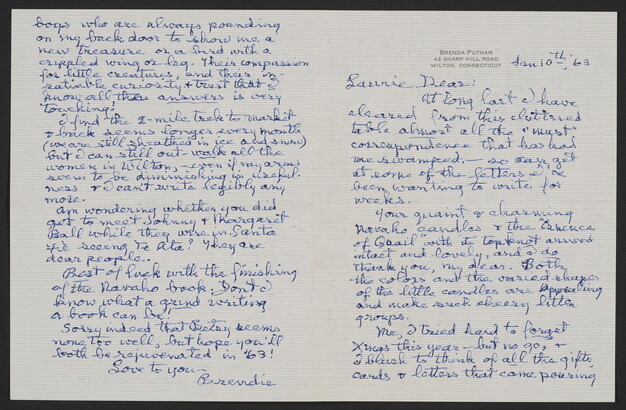 BRENDA PUTNAM
42 SHARP HILL ROAD
WILTON, CONNECTICUT
Jan 10th '63
Laurie Dear:
At long last I have
cleared from this cluttered
table almost all the "must"
correspondence that has had
me swamped, — so can get
at some of the letters I've
been wanting to write for
weeks.
Your quaint & charming
Navaho candles & the "Essence
of Quail" with its topknot arrived
intact and lovely, and I do
thank you, my dear. Both
the colors and the varied shapes
of the little candles are appealing
and make such cheery little
groups.
Me, I tried hard to forget
Xmas this year — but no go, &
I blush to think of all the gifts
cards & letters that came pouring
boys who are always pounding
on my back door to show me a
new treasure or a bird with a
crippled wing or leg. Their compassion
for little creatures, and their in-
satiable curiosity & trust that I
know all the answers is very
touching!
I find the 2-mile trek to market
& back seems longer every month
(we are still sheathed in ice and snow)
but I can still out-walk all the
women in Wilton, — even if my arms
seem to be diminishing in useful-
ness & I can't write legibly any
more.
Am wondering whether you did
get to meet Johnny & Margaret
Ball while they were in Santa
Fe seeing Te Ata? They are
dear people.
Best of luck with the finishing
of the Navaho book; Don't I
know what a grind writing
a book can be!
Sorry indeed that Betsy seems
none too well, but hope you'll
both be rejuvenated in '63!
Love to you —
Brendie